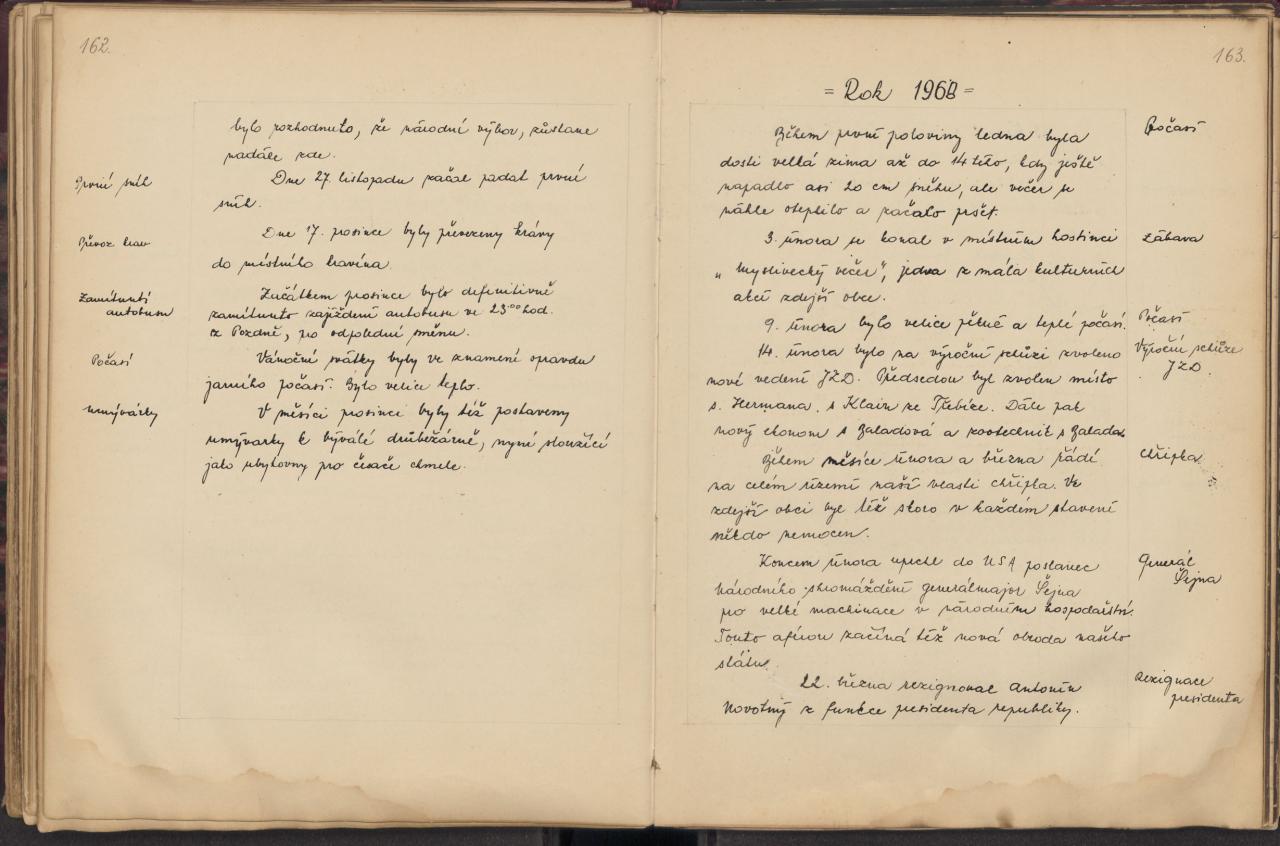 162.
bylo rozhodnuto, že národní výbor, zůstane
nadále zde.
První sníh
Dne 27. listopadu začal padat první
sníh.
Převoz krav
Dne 17. prosince byly převezeny krávy
do místního kravína.
Zamítnutí
autobusu
Začátkem prosince bylo definitivně
zamítnuto zajíždění autobusu ve 23⁰⁰ hod.
z Pozdně, po odpolední směnu.
Počasí
Vánoční svátky byly ve znamení opravdu
jarního počasí. Bylo velice teplo.
umývárky
V měsíci prosinci byly též postaveny
umývarky k bývalé drůbežárně, nyní sloužící
jako ubytovny pro česače chmele.
163.
= Rok 1968 =
Počasí
Během první poloviny ledna byla
dosti velká zima až do 14 této, kdy ještě
napadlo asi 20 cm sněhu, ale večer se
náhle oteplilo a začalo pršet.
Zábava
3. února se konal v místním hostinci
„Myslivecký večer", jedna z mála kulturních
akcí zdejší obce.
Počasí
9. února bylo velice pěkné a teplé počasí.
Výroční schůze
JZD.
14. února bylo na výroční schůzi zvoleno
nové vedení JZD. Předsedou byl zvolen místo
s. Hermana, s Klain ze Třebíze. Dále pak
nový ekonom s Zaladová a zootechnik s Zalada.
chřipka
Během měsíce února a března řádí
na celém území naší vlasti chřipka. Ve
zdejší obci byl též skoro v každém stavení
někdo nemocen.
Generál
Šejna
Koncem února uprchl do USA poslanec
národního shromáždění generálmajor Šejna
pro velké machinace v národním hospodářství.
Touto aférou začíná též nová obroda našeho
státu.
Rezignace
presidenta
22. března rezignoval Antonín
Novotný z funkce presidenta republiky.